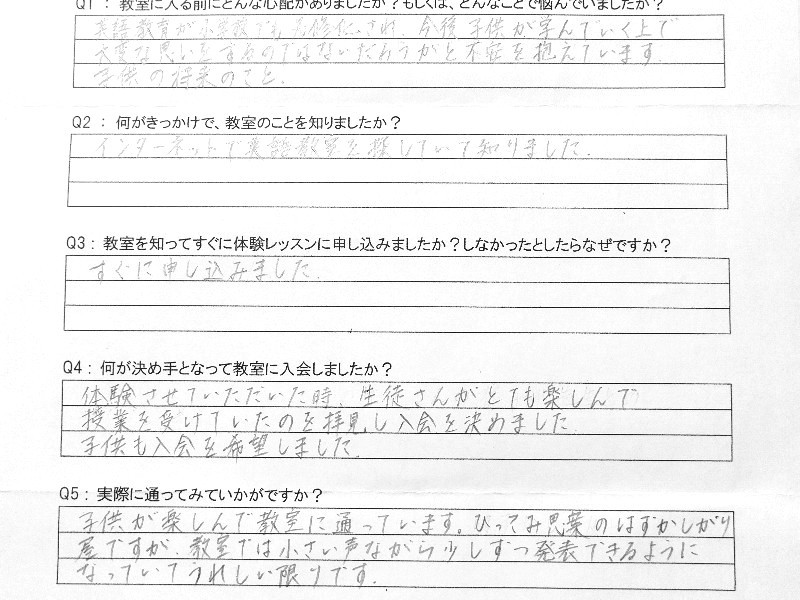 Q1 : 教室に入る前にどんな心配がありましたか？もしくは、どんなことで悩んでいましたか？
英語教育が小学校でも必修化され、今後子供が学んでいく上で
大変な思いをするのではないだろうかと不安を抱えています。
子供の将来のこと.
Q2 : 何がきっかけで、教室のことを知りましたか？
インターネットで英語教室を探していて知りました.
Q3 : 教室を知ってすぐに体験レッスンに申し込みましたか？しなかったとしたらなぜですか？
すぐに申し込みました.
Q4 : 何が決め手となって教室に入会しましたか？
体験させていただいた時、生徒さんがとても楽しんで
授業を受けていたのを拝見し入会を決めました.
子供も入会を希望しました.
Q5 : 実際に通ってみていかがですか？
子供が楽しんで教室に通っています。ひっこみ思案のはずかしがり
屋ですが、教室では小さい声ながら少しずつ発表できるように
なっていてうれしい限りです.